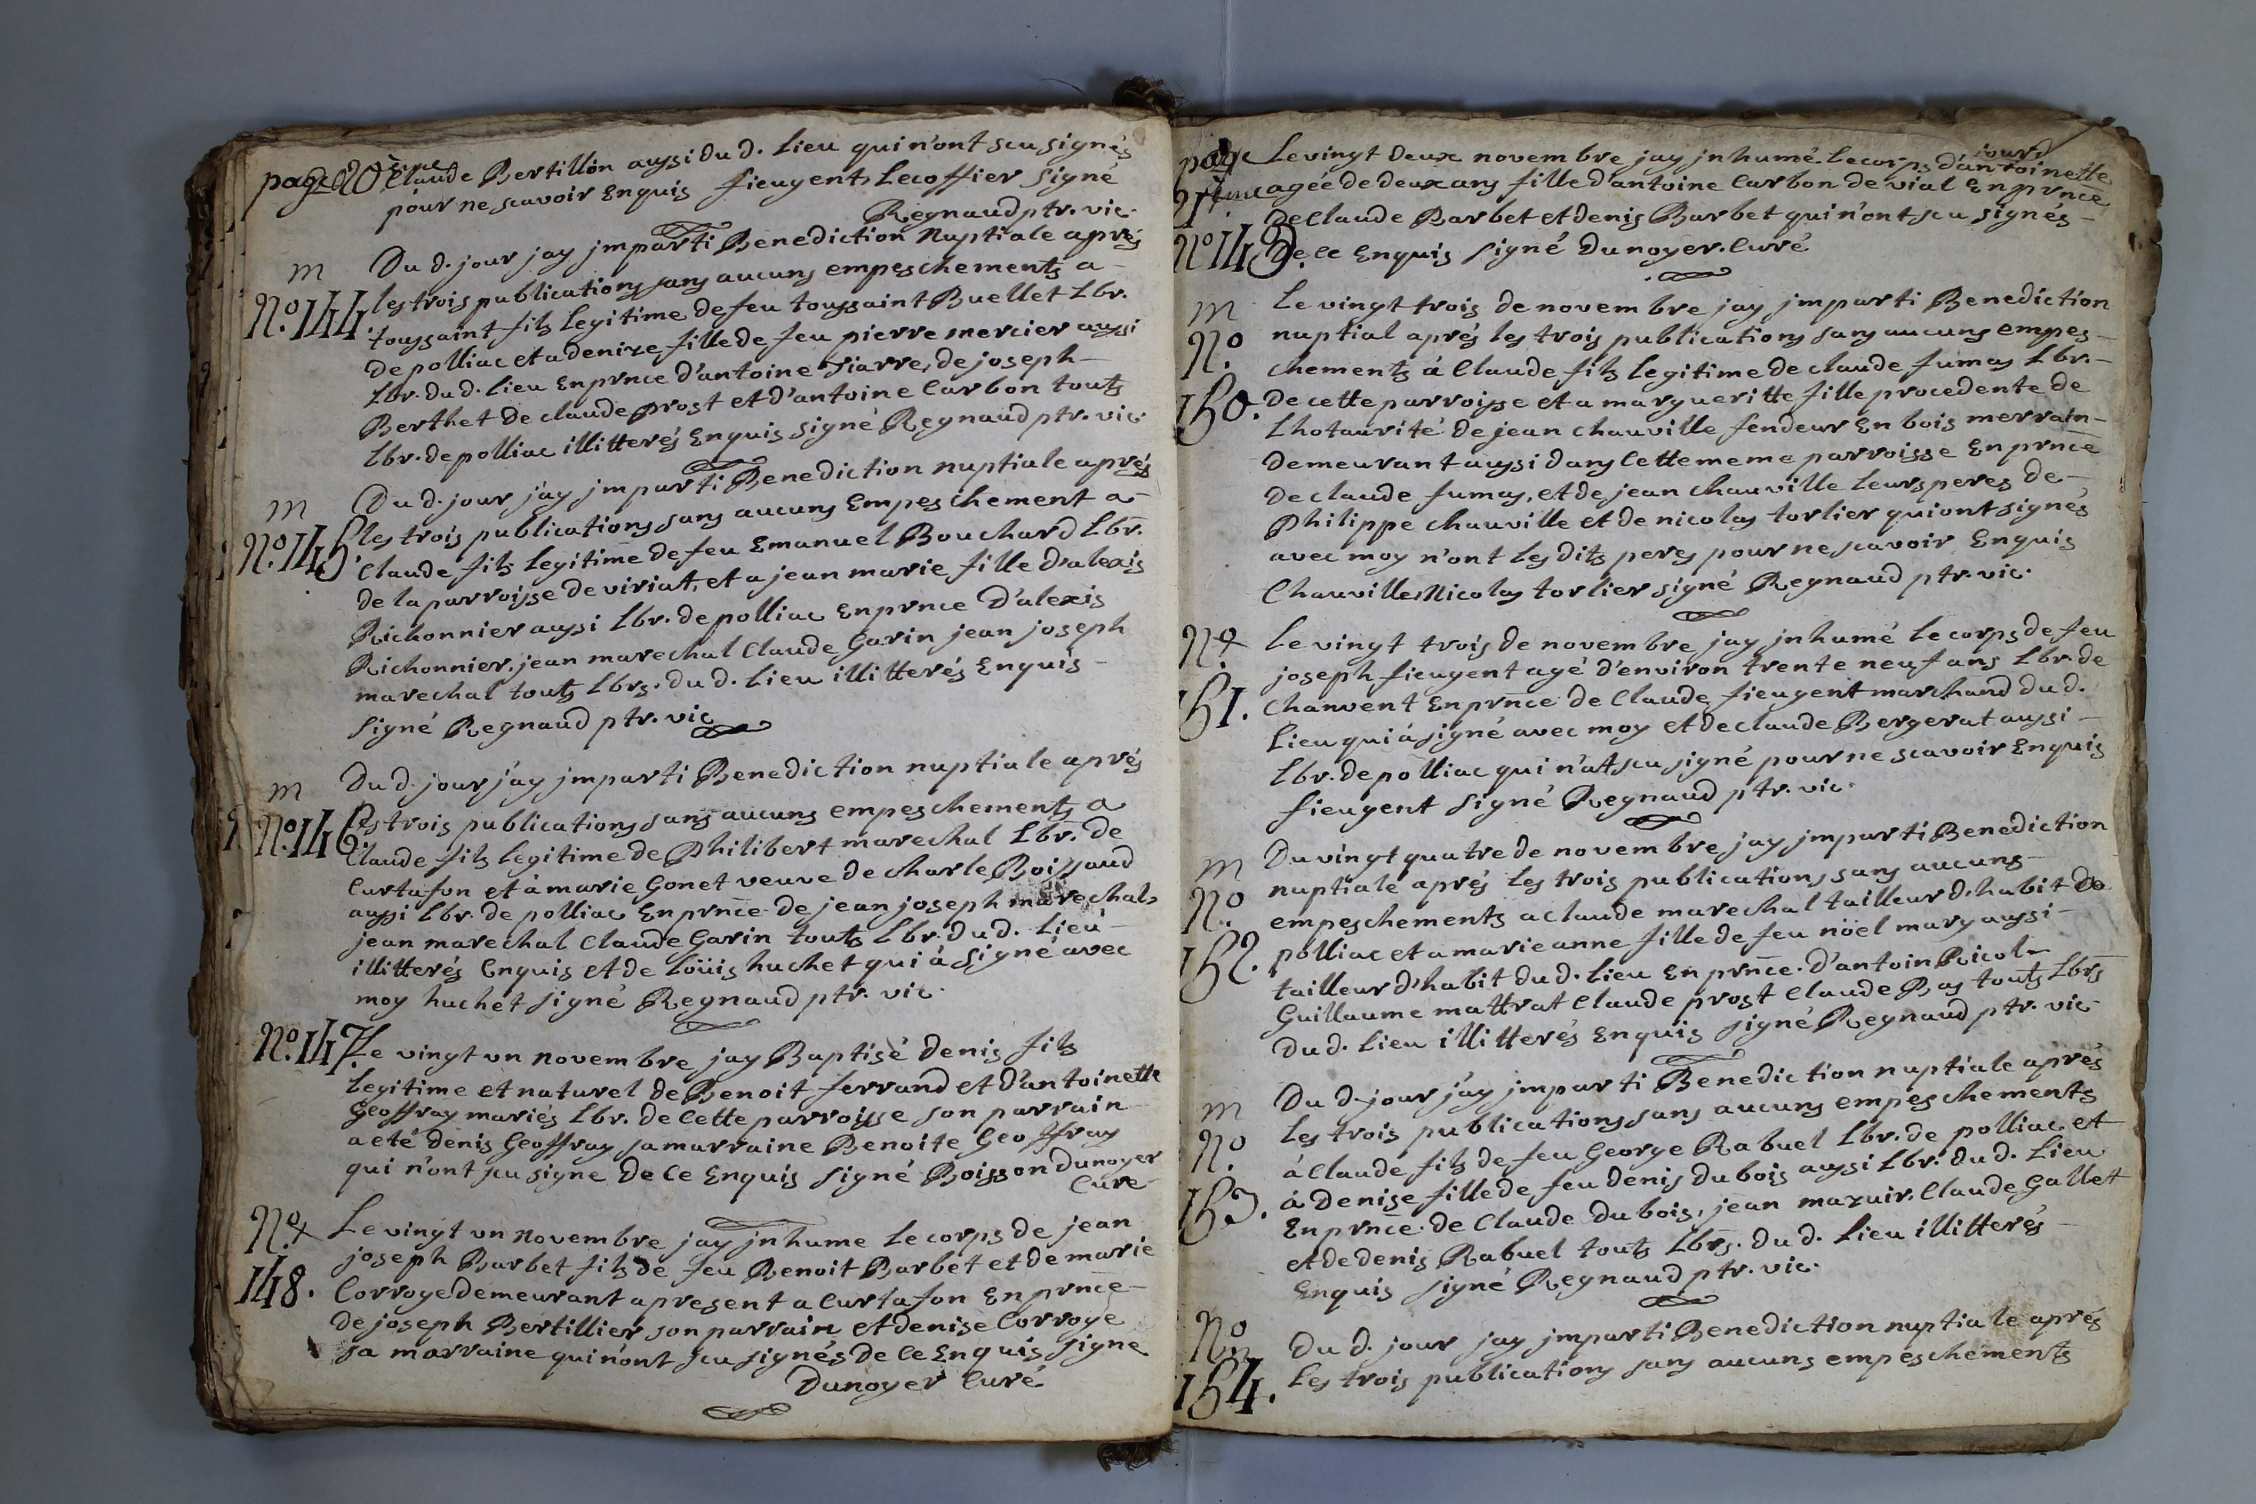 page 20ème Claude Bertillon aussi du d. lieu qui n'ont scu signés
pour ne scavoir Enquis fieugent, Lecoffier Signé
Regnaud ptr. vic.
Du d. jour jay jmparti Benediction Nuptiale aprés
m
No. 144 les trois publications sans aucuns empeschements a
toussaint fils legitime de feu toussaint Buellet Lbr.
de polliac et a denize fille de feu pierre mercier aussi
Lbr. du d. lieu En prnce d'antoine Siarre, de joseph
Berthet de claude prost et d'antoine Carbon touts
Lbr. de polliac illitterés Enquis signé Regnaud ptr. vic.
m
Du d. jour j'ay jmparti Benediction nuptiale aprés
No. 145 les trois publications sans aucuns Empeschement a
Claude fils legitime de feu Emanuel Bouchard Lbr.
de la parroisse de viriat, et a jean marie fille d'alexis
Richonnier aussi Lbr. de polliac En prnce D'alexis
Richonnier, jean marechal Claude Garin jean joseph
marechal touts Lbrs. du d. Lieu illitterés Enquis
Signé Regnaud ptr. vic
m
Du d. jour j'ay jmparti Benediction nuptiale aprés
No. 146. les trois publications sans aucuns empeschements a
Claude fils legitime de Philibert marechal Lbr. de
Curtafon et á marie Gonet veuve de charle Boissaud
aussi Lbr. de polliac En prnce de jean joseph marechal,
jean marechal Claude Garin touts Lbr. du d. Lieu
illitterés Enquis et de Loüis huchet qui á Signé avec
moy huchet signé Regnaud ptr. vic.
No. 147. Le vingt vn novembre jay Baptisé Denis fils
Legitime et naturel de Benoit ferrand et d'antoinette
Geoffray mariés Lbr. de Cette parroisse son parrain
a eté denis Geoffray sa marraine Benoite Geoffray
qui n'ont scu signe de Ce Enquis Signé Boisson Dunoyer
Curé
No. + Le vingt vn novembre jay jnhume Le corps de jean
joseph Barbet fils de feu Benoit Barbet et de marie
148. Corroge demeurant a present a Curtafon En prnce
de joseph Bertillier son parrain et denise Corroge
sa marraine qui n'ont scu signés de Ce Enquis signe
Dunoyer Curé
page Le vingt Deux novembre jay jnhumé Le corps d'antoinette
21eme agée de deux ans fille d'antoine Carbon de vial En prnce
De Claude Barbet et denis Barbet qui n'ont scu signés
No 149. De Ce Enquis Signé Dunoyer. Curé
m Le vingt trois de novembre jay jmparti Benediction
No. nuptial aprés les trois publications sans aucuns empes
chements á Claude fils Legitime de claude fumas Lbr.
150. De cette parroisse et a margueritte fille procedente de
Lhotaurité de jean chauville fendeur En bois merrain
Demeurant aussi dans Cette meme parroisse En prnce
De claude fumas, et de jean chauville Leurs peres de
Philippe chauville et de nicolas torlier qui ont signés
avec moy n'ont les dits peres pour ne scavoir Enquis
Chauville, Nicolas torlier signé Regnaud ptr. vic.
No + Le vingt trois de novembre jay jnhumé Le corps de feu
joseph fieugent agé d'environ trente neuf ans Lbr. de
151. Chanvent En prnce de Claude fieugent marchand du d.
Lieu qui á signé avec moy et de claude Bergerat aussi
Lbr. de polliac qui n'at scu signé pour ne scavoir Enquis
fieugent signé Regnaud ptr. vic.
m Du vingt quatre de novembre, jay jmparti Benediction
No. nuptiale aprés Les trois publications sans aucuns
empeschements a claude marechal tailleur d'habit de
152. polliac et a marie anne fille de feu nöel mary aussi
tailleur d'habit du d. Lieu En prnce. d'antoin Picol
Guillaume mattrat Claude prost Claude Ras touts Lbrs
Du d. Lieu illitterés Enquis signé Regnaud ptr. vic
m Du d. jour j'ay jmparti Benediction nuptiale aprés
No. Les trois publications sans aucuns empeschements
á Claude fils de feu George Rabuel Lbr. de polliac et
153. á Denise fille de feu Denis Dubois aussi Lbr. du d. Lieu
En prnce de Claude Dubois, jean mazuir, Claude Gallet
et de denis Rabuel touts Lbrs. du d. Lieu illitterés
Enquis signé Regnaud ptr. vic.
No. Du d. jour jay jmparti Benediction nuptiale aprés
154. Les trois publications sans aucuns empeschements